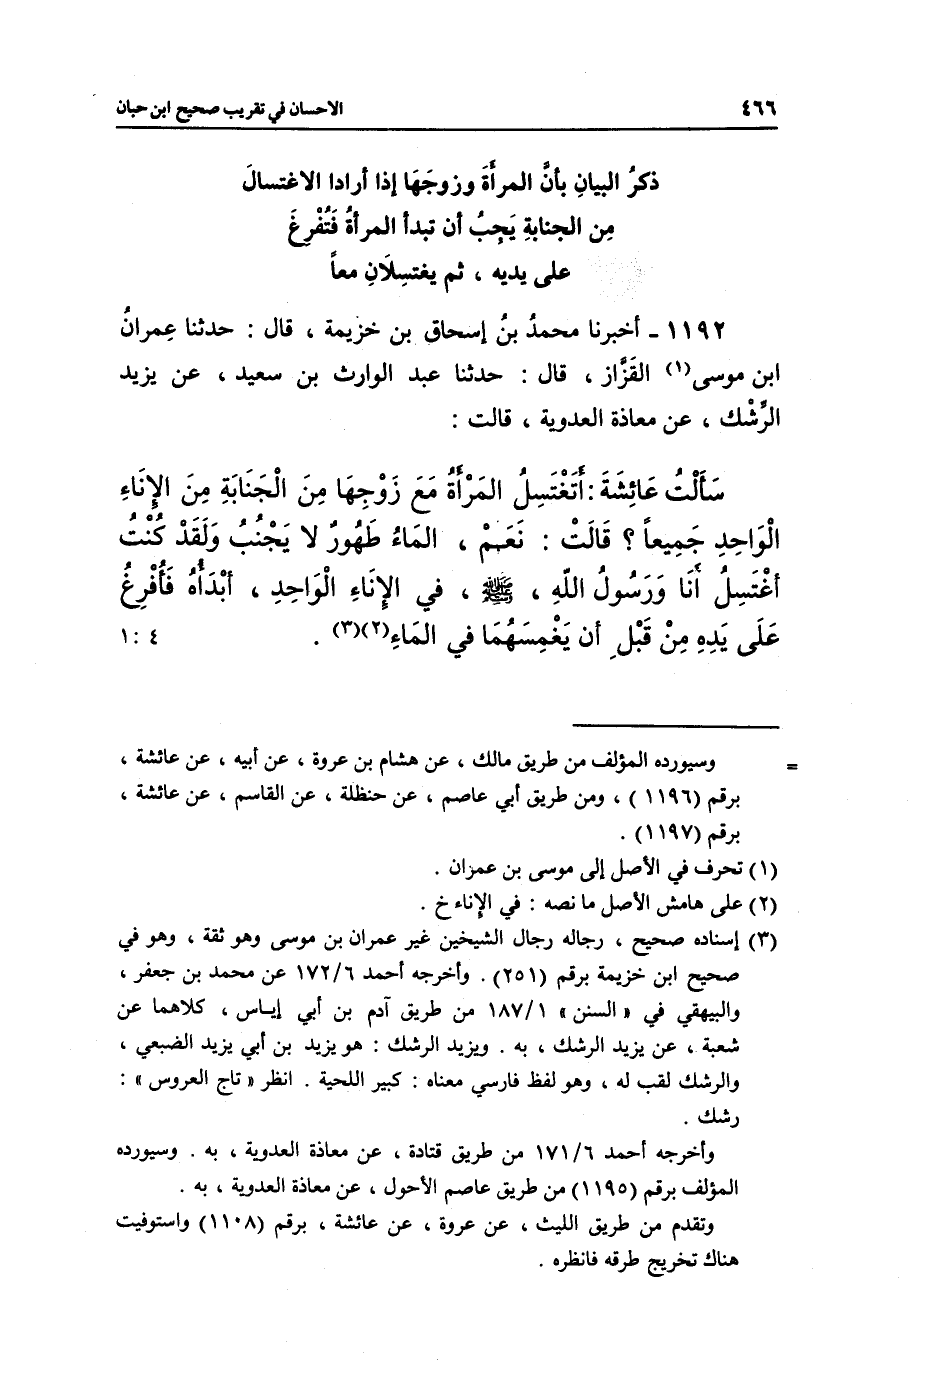 ٤٦٦ الاحسان في تقريب صحيح ابن حبان
ذكرُ البيانِ بأنَّ المرأةَ وزوجَهَا إذا أرادا الاغتسالَ
مِن الجنابةِ يَجِبُ أن تبدأ المرأةُ فَتُفْرِغَ
على يديه ، ثم يغتسِلَانِ معاً
١١٩٢ - أخبرنا محمدُ بنُ إسحاق بن خزيمة ، قال : حدثنا عِمرانُ
ابن موسى(١) القَزَّاز ، قال : حدثنا عبد الوارث بن سعيد ، عن يزيد
الرِّشْك ، عن معاذة العدوية ، قالت :
سَأَلْتُ عَائِشَةَ : أَتَغْتَسِلُ المَرْأَةُ مَعَ زَوْجِهَا مِنَ الْجَنَابَةِ مِنَ الإِنَاءِ
الْوَاحِدِ جَمِيعاً ؟ قَالَتْ : نَعَمْ ، المَاءُ طَهُورٌ لا يَجْنُبُ وَلَقَدْ كُنْتُ
أغْتَسِلُ أَنَا وَرَسُولُ اللَّهِ ، ﷺ ، في الإِنَاءِ الْوَاحِدِ ، أبْدَأُهُ فَأُفْرِغُ
عَلَى يَدِهِ مِنْ قَبْلِ أن يَغْمِسَهُمَا في المَاءِ(٢)(٣) . ٤ : ١
= وسيورده المؤلف من طريق مالك ، عن هشام بن عروة ، عن أبيه ، عن عائشة ،
برقم (١١٩٦) ، ومن طريق أبي عاصم ، عن حنظلة ، عن القاسم ، عن عائشة ،
برقم (١١٩٧) .
(١) تحرف في الأصل إلى موسى بن عمران .
(٢) على هامش الأصل ما نصه : في الإناء خ .
(٣) إسناده صحيح ، رجاله رجال الشيخين غير عمران بن موسى وهو ثقة ، وهو في
صحيح ابن خزيمة برقم (٢٥١) . وأخرجه أحمد ١٧٢/٦ عن محمد بن جعفر ،
والبيهقي في « السنن » ١٨٧/١ من طريق آدم بن أبي إياس ، كلاهما عن
شعبة ، عن يزيد الرشك ، به . ويزيد الرشك : هو يزيد بن أبي يزيد الضبعي ،
والرشك لقب له ، وهو لفظ فارسي معناه : كبير اللحية . انظر « تاج العروس » :
رشك .
وأخرجه أحمد ١٧١/٦ من طريق قتادة ، عن معاذة العدوية ، به . وسيورده
المؤلف برقم (١١٩٥) من طريق عاصم الأحول ، عن معاذة العدوية ، به .
وتقدم من طريق الليث ، عن عروة ، عن عائشة ، برقم (١١٠٨) واستوفيت
هناك تخريج طرقه فانظره .